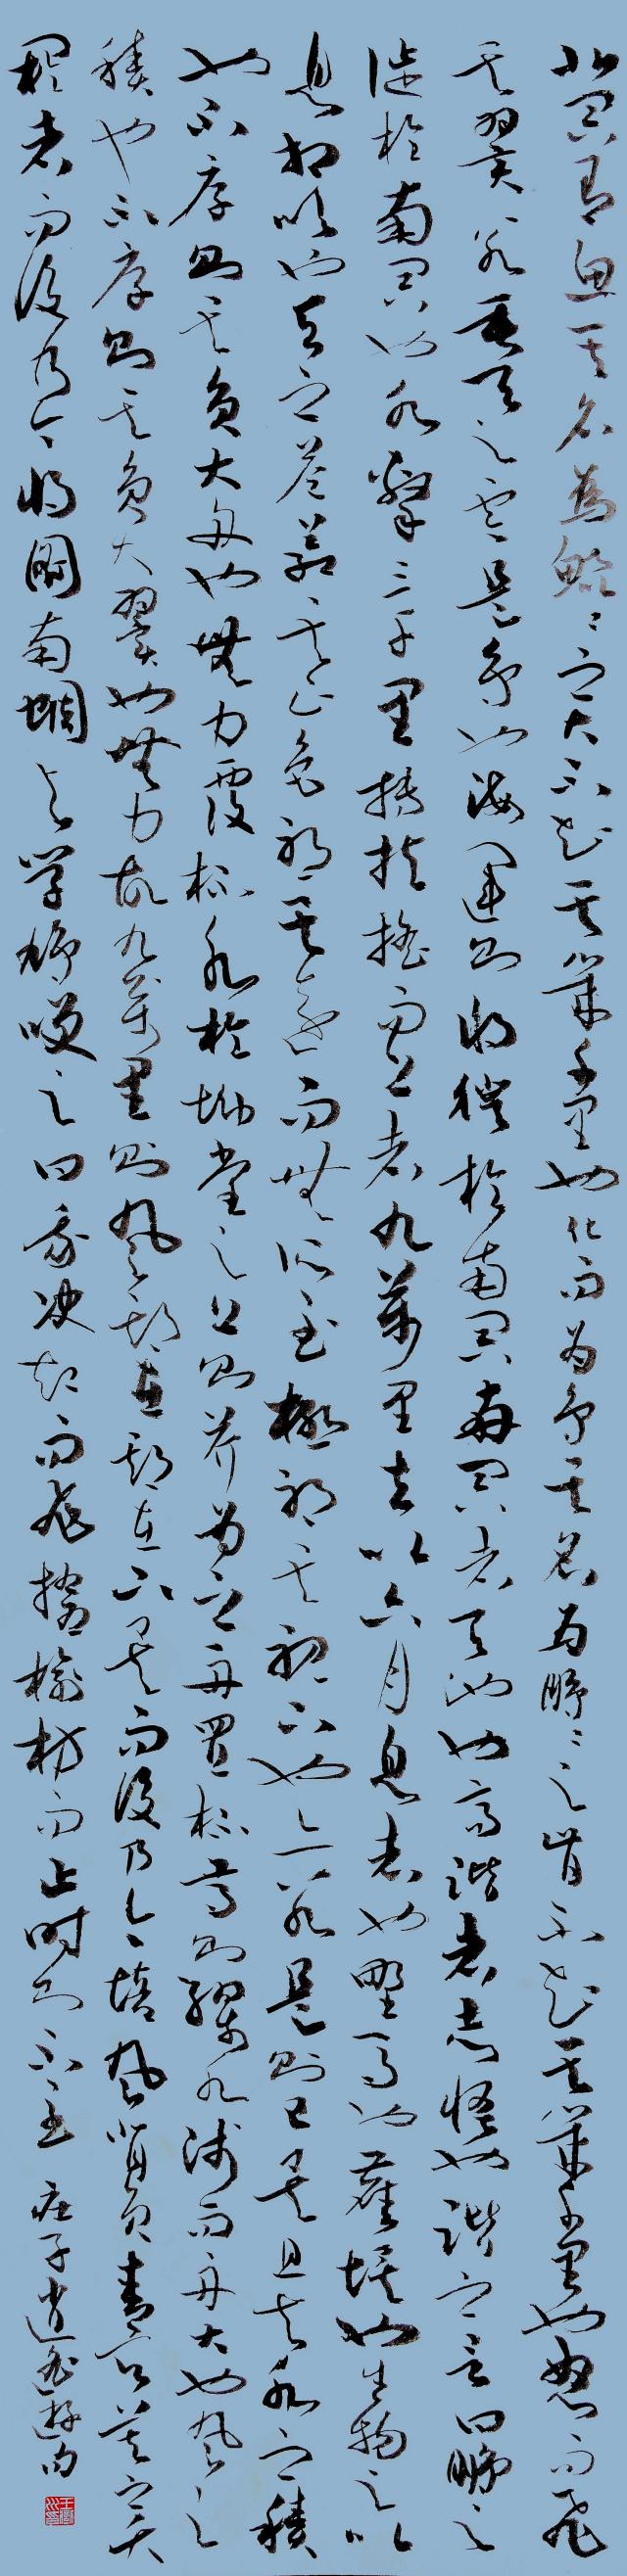 北冥有魚其名為鯤鯤之大不知其幾千里也化而為鳥其名為鵬鵬之背不知其幾千里也怒而飛
其翼若垂天之雲是鳥也海運則將徙於南冥南冥者天池也齊諧者志怪也諧之言曰鵬之
徙於南冥也水擊三千里摶扶搖而上者九萬里去以六月息者也野馬也塵埃也生物之以
息相吹也天之蒼蒼其正色邪其遠而無所至極邪其視下也亦若是則已矣且夫水之積
也不厚則其負大舟也無力覆杯水於坳堂之上則芥為之舟置杯焉則膠水淺而舟大也風之
積也不厚則其負大翼也無力故九萬里則風斯在斯在下矣而後乃今培風背負青天莫之夭
閼者而後乃今將圖南蜩與學鳩笑之曰我決起而飛搶榆枋而止時則不至 莊子逍遙遊句